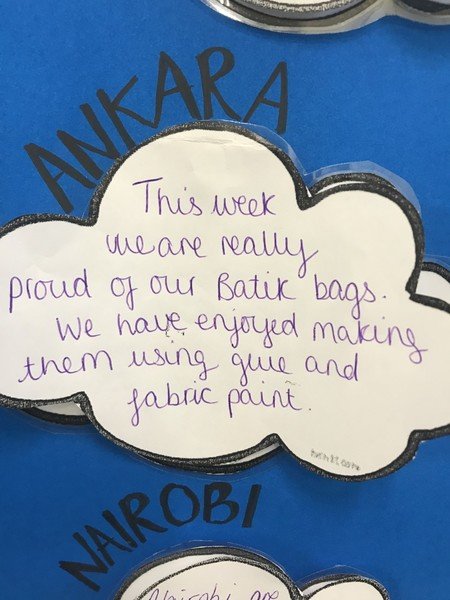 ANKARA
This week
we are really
proud of our Batik bags.
We have enjoyed making
them using glue and
fabric paint.
NAIROBI
Nairobi are